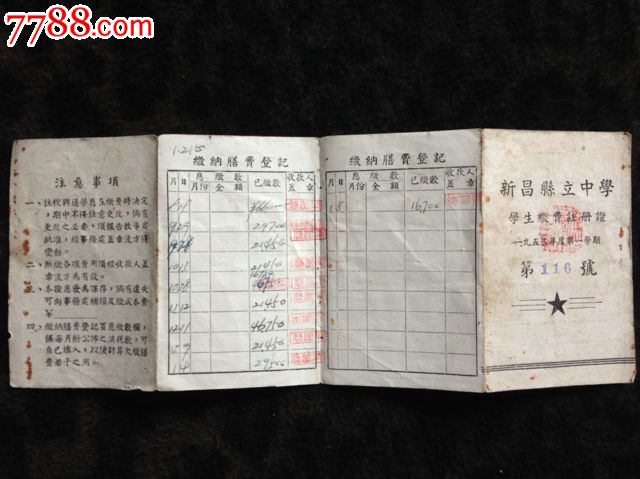 7788.com
注意事項
一、住校與通學應在繳費時決定，
期中不得任意更改，倘有
更改之必要，須報告教導處
批准，經事務處蓋章後方得
變動。
二、所繳各項費用須經收款人蓋
章後方為有效。
三、本證應妥為保存，倘有遺失
可向事務處補領及繳成本費
四、繳納膳費登記頁應繳數欄，
係每月所公佈之消耗數，可
自己填入，以便計算欠繳膳
費若干之用。
1.215
繳納膳費登記
月 日 應繳月份 繳數金額 已繳數 收款人蓋章
9.29 29700
21450
10.13 21450
11.12 21450
12.11 46750
12.9 21450
1.4 29500
繳納膳費登記
月 日 應繳月份 繳數金額 已繳數 收款人蓋章
1 8 16700
新昌縣立中學
學生繳費註冊證
一九五三年度第一學期
第 116 號